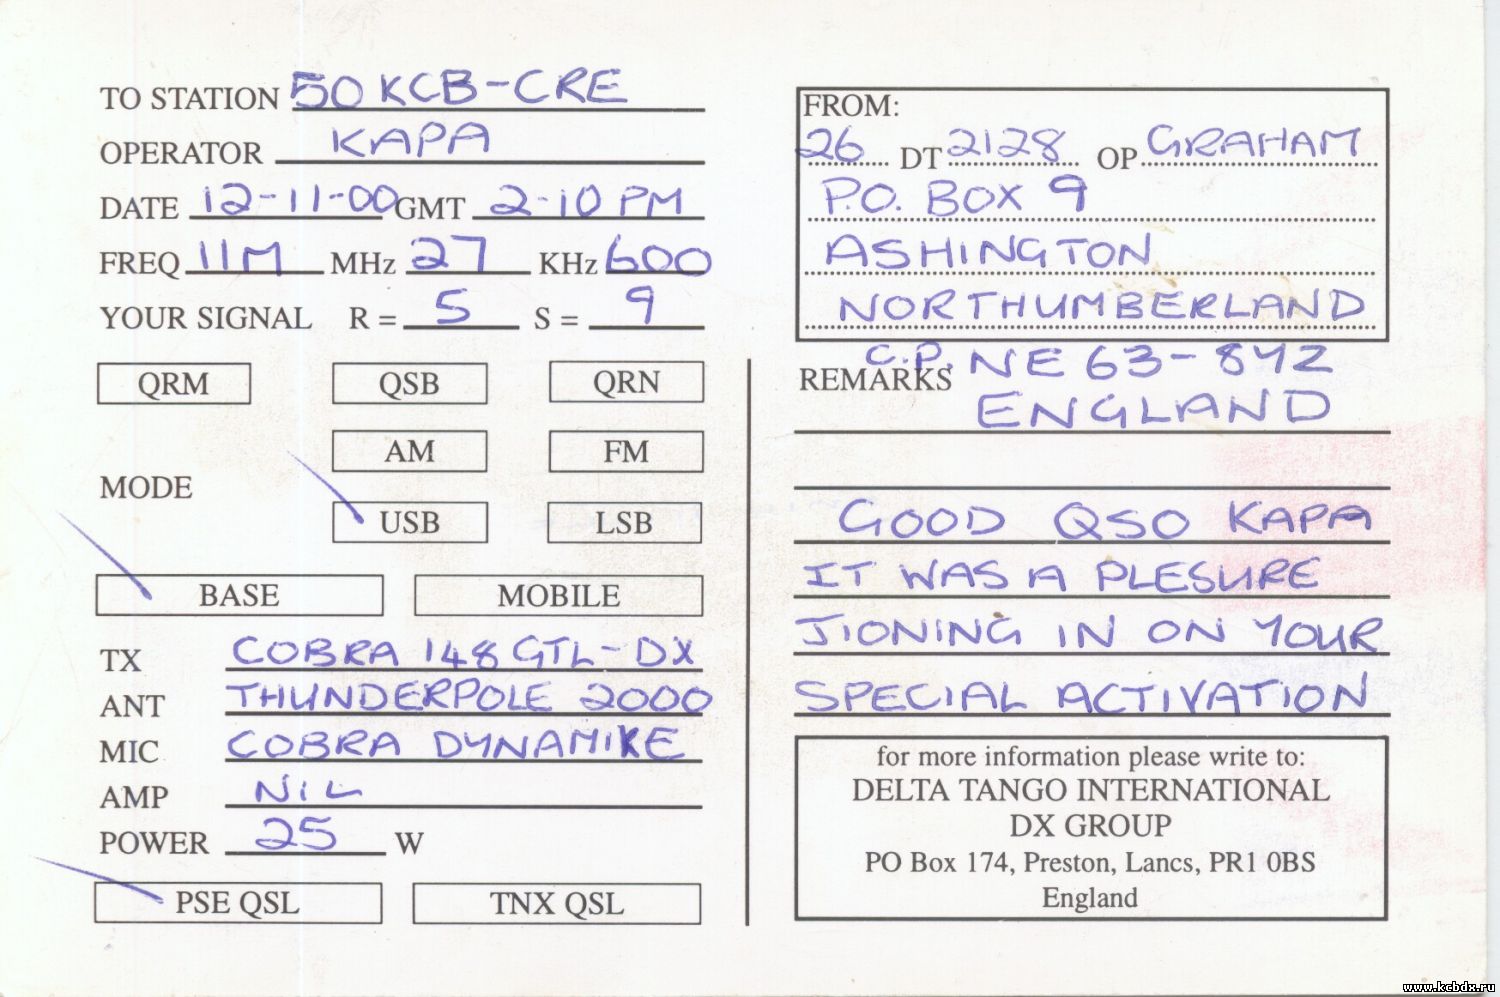 TO STATION 50 KCB-CRE
OPERATOR KAPA
DATE 12-11-00 GMT 2-10 PM
FREQ 11M MHz 27 KHz 600
YOUR SIGNAL R = 5 S = 9
QRM QSB QRN
AM FM
MODE
USB LSB
BASE MOBILE
TX COBRA 148 GTL-DX
ANT THUNDERPOLE 2000
MIC COBRA DYNAMIKE
AMP NIL
POWER 25 W
PSE QSL TNX QSL
FROM:
26 DT 2128 OP GRAHAM
P.O. BOX 9
ASHINGTON
NORTHUMBERLAND
C.P. NE 63-8YZ
REMARKS
ENGLAND
GOOD QSO KAPA
IT WAS A PLESURE
JIONING IN ON YOUR
SPECIAL ACTIVATION
for more information please write to:
DELTA TANGO INTERNATIONAL
DX GROUP
PO Box 174, Preston, Lancs, PR1 0BS
England
www.kcbdx.ru